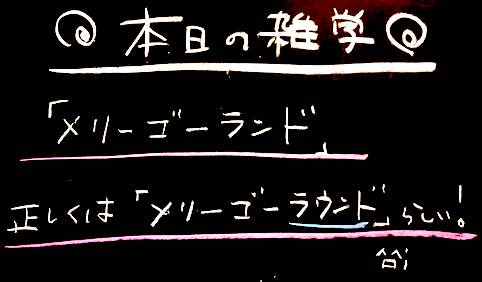 本日の雑学
「メリーゴーランド」
正しくは「メリーゴーラウンド」らしい!